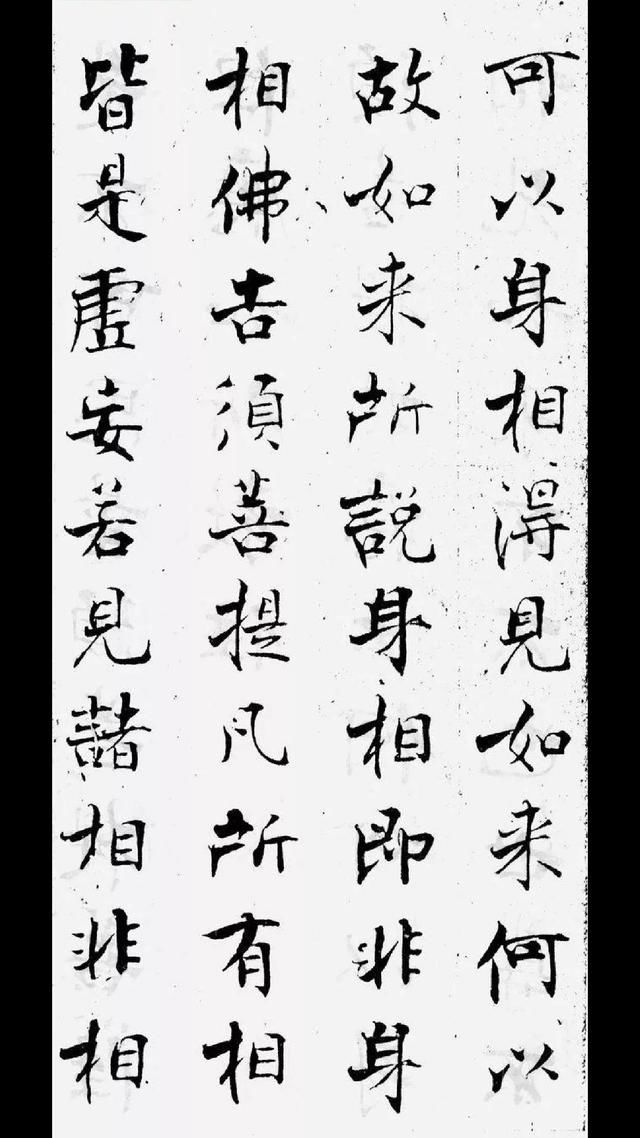 可以身相得見如来何以
故如来所説身相即非身
相佛告須菩提凡所有相
皆是虛妄若見諸相非相